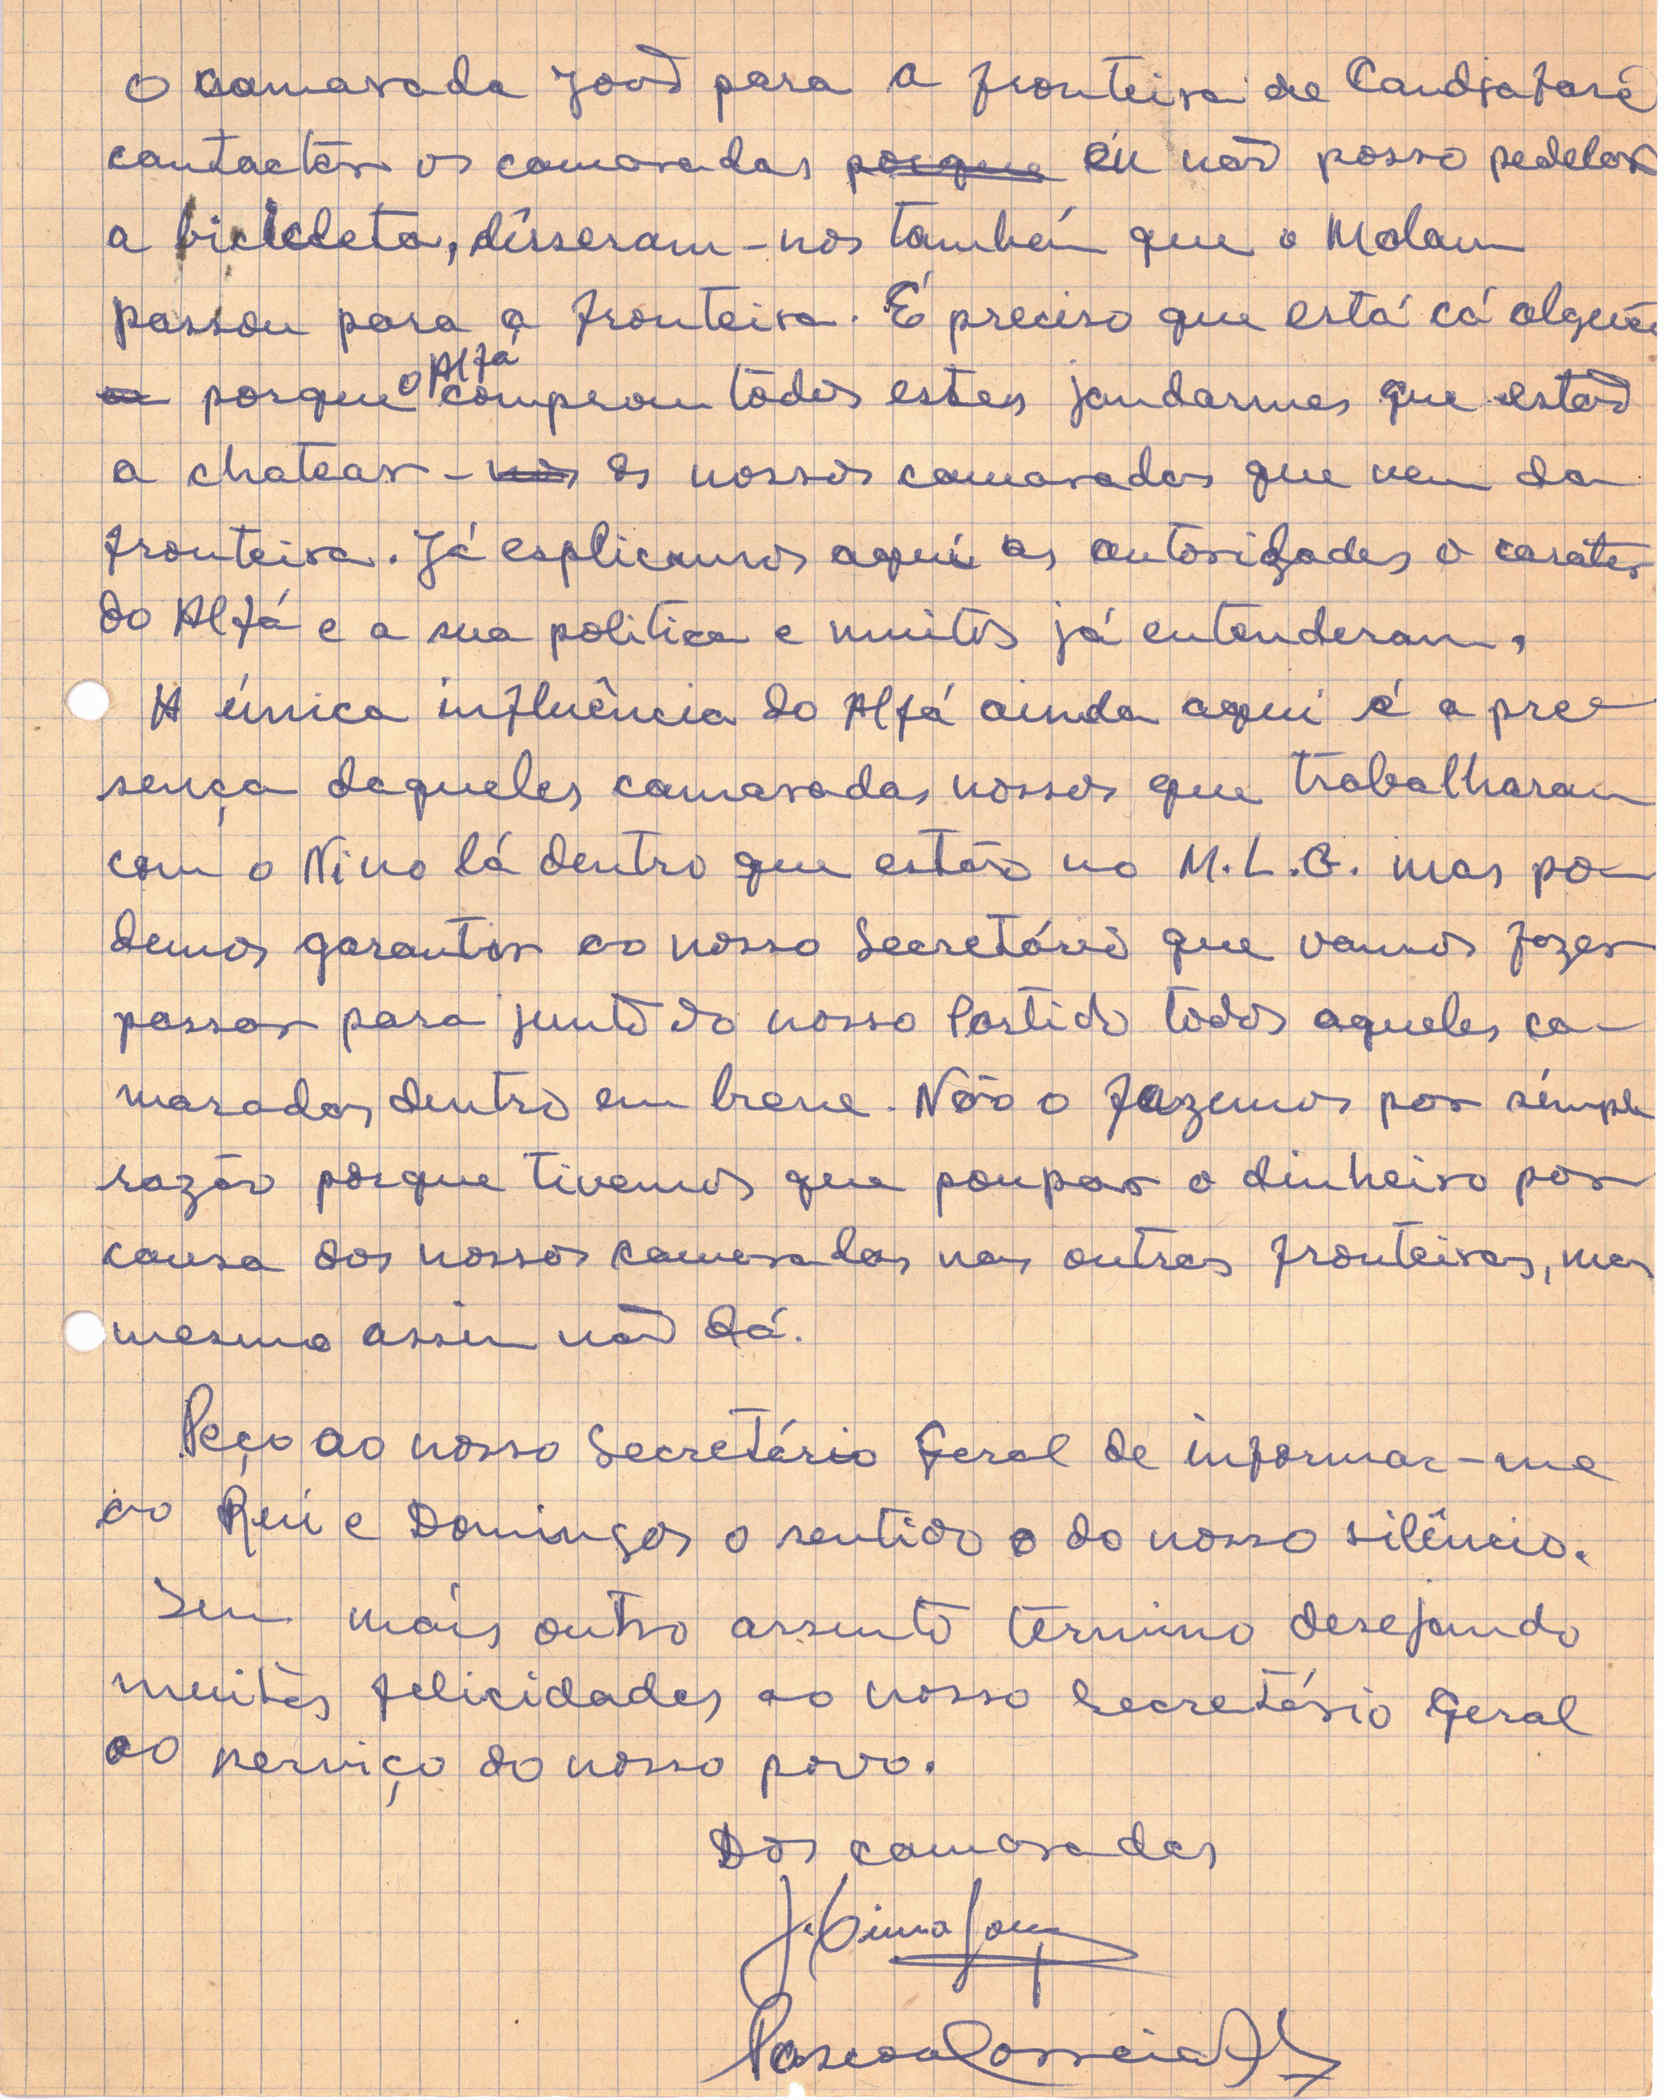 O camarada João para a fronteira de Candjafará
contactar os camaradas porque eu não posso pedelar
a bicicleta, disseram-nos também que o Malam
passou para a fronteira. É preciso que está cá alguém
porque o Alfá comprou todos estes jandarmes que estão
a chatear-nos os nossos camaradas que vem da
fronteira. Já esplicamos aqui as autoridades o caráter
do Alfá e a sua politica e muitos já entenderam,
A única influência do Alfá ainda aqui é a pre-
sença daqueles camaradas nossos que trabalharam
com o Nino lá dentro que estão no M.L.G. mas po-
demos garantir ao nosso Secretário que vamos fazer
passar para junto do nosso Partido todos aqueles ca-
maradas dentro em breve. Não o fazemos por simples
razão porque tivemos que poupar o dinheiro por
causa dos nossos camaradas nas outras fronteiras, mas
mesmo assim não dá.
Peço ao nosso Secretário Geral de informar-me
ao Rui e Domingos o sentido do nosso silêncio.
Sem mais outro assunto termino desejando
muitas felicidades ao nosso Secretário Geral
ao serviço do nosso povo.
Dos camaradas
Pascoal Correia